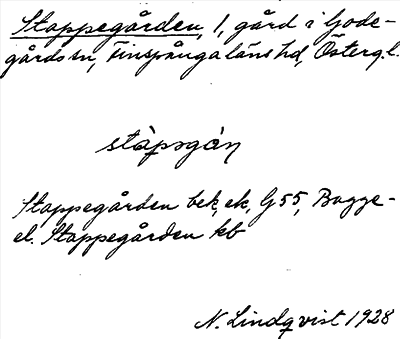 Stappegården, 1, gård i Gode-
gårds sn, Finspånga läns hd, Österg. l.
stàpəgàṇ
Stappegården bek, ek, G 55, Bagge-
el. Stappegården kb
N. Lindqvist 1928